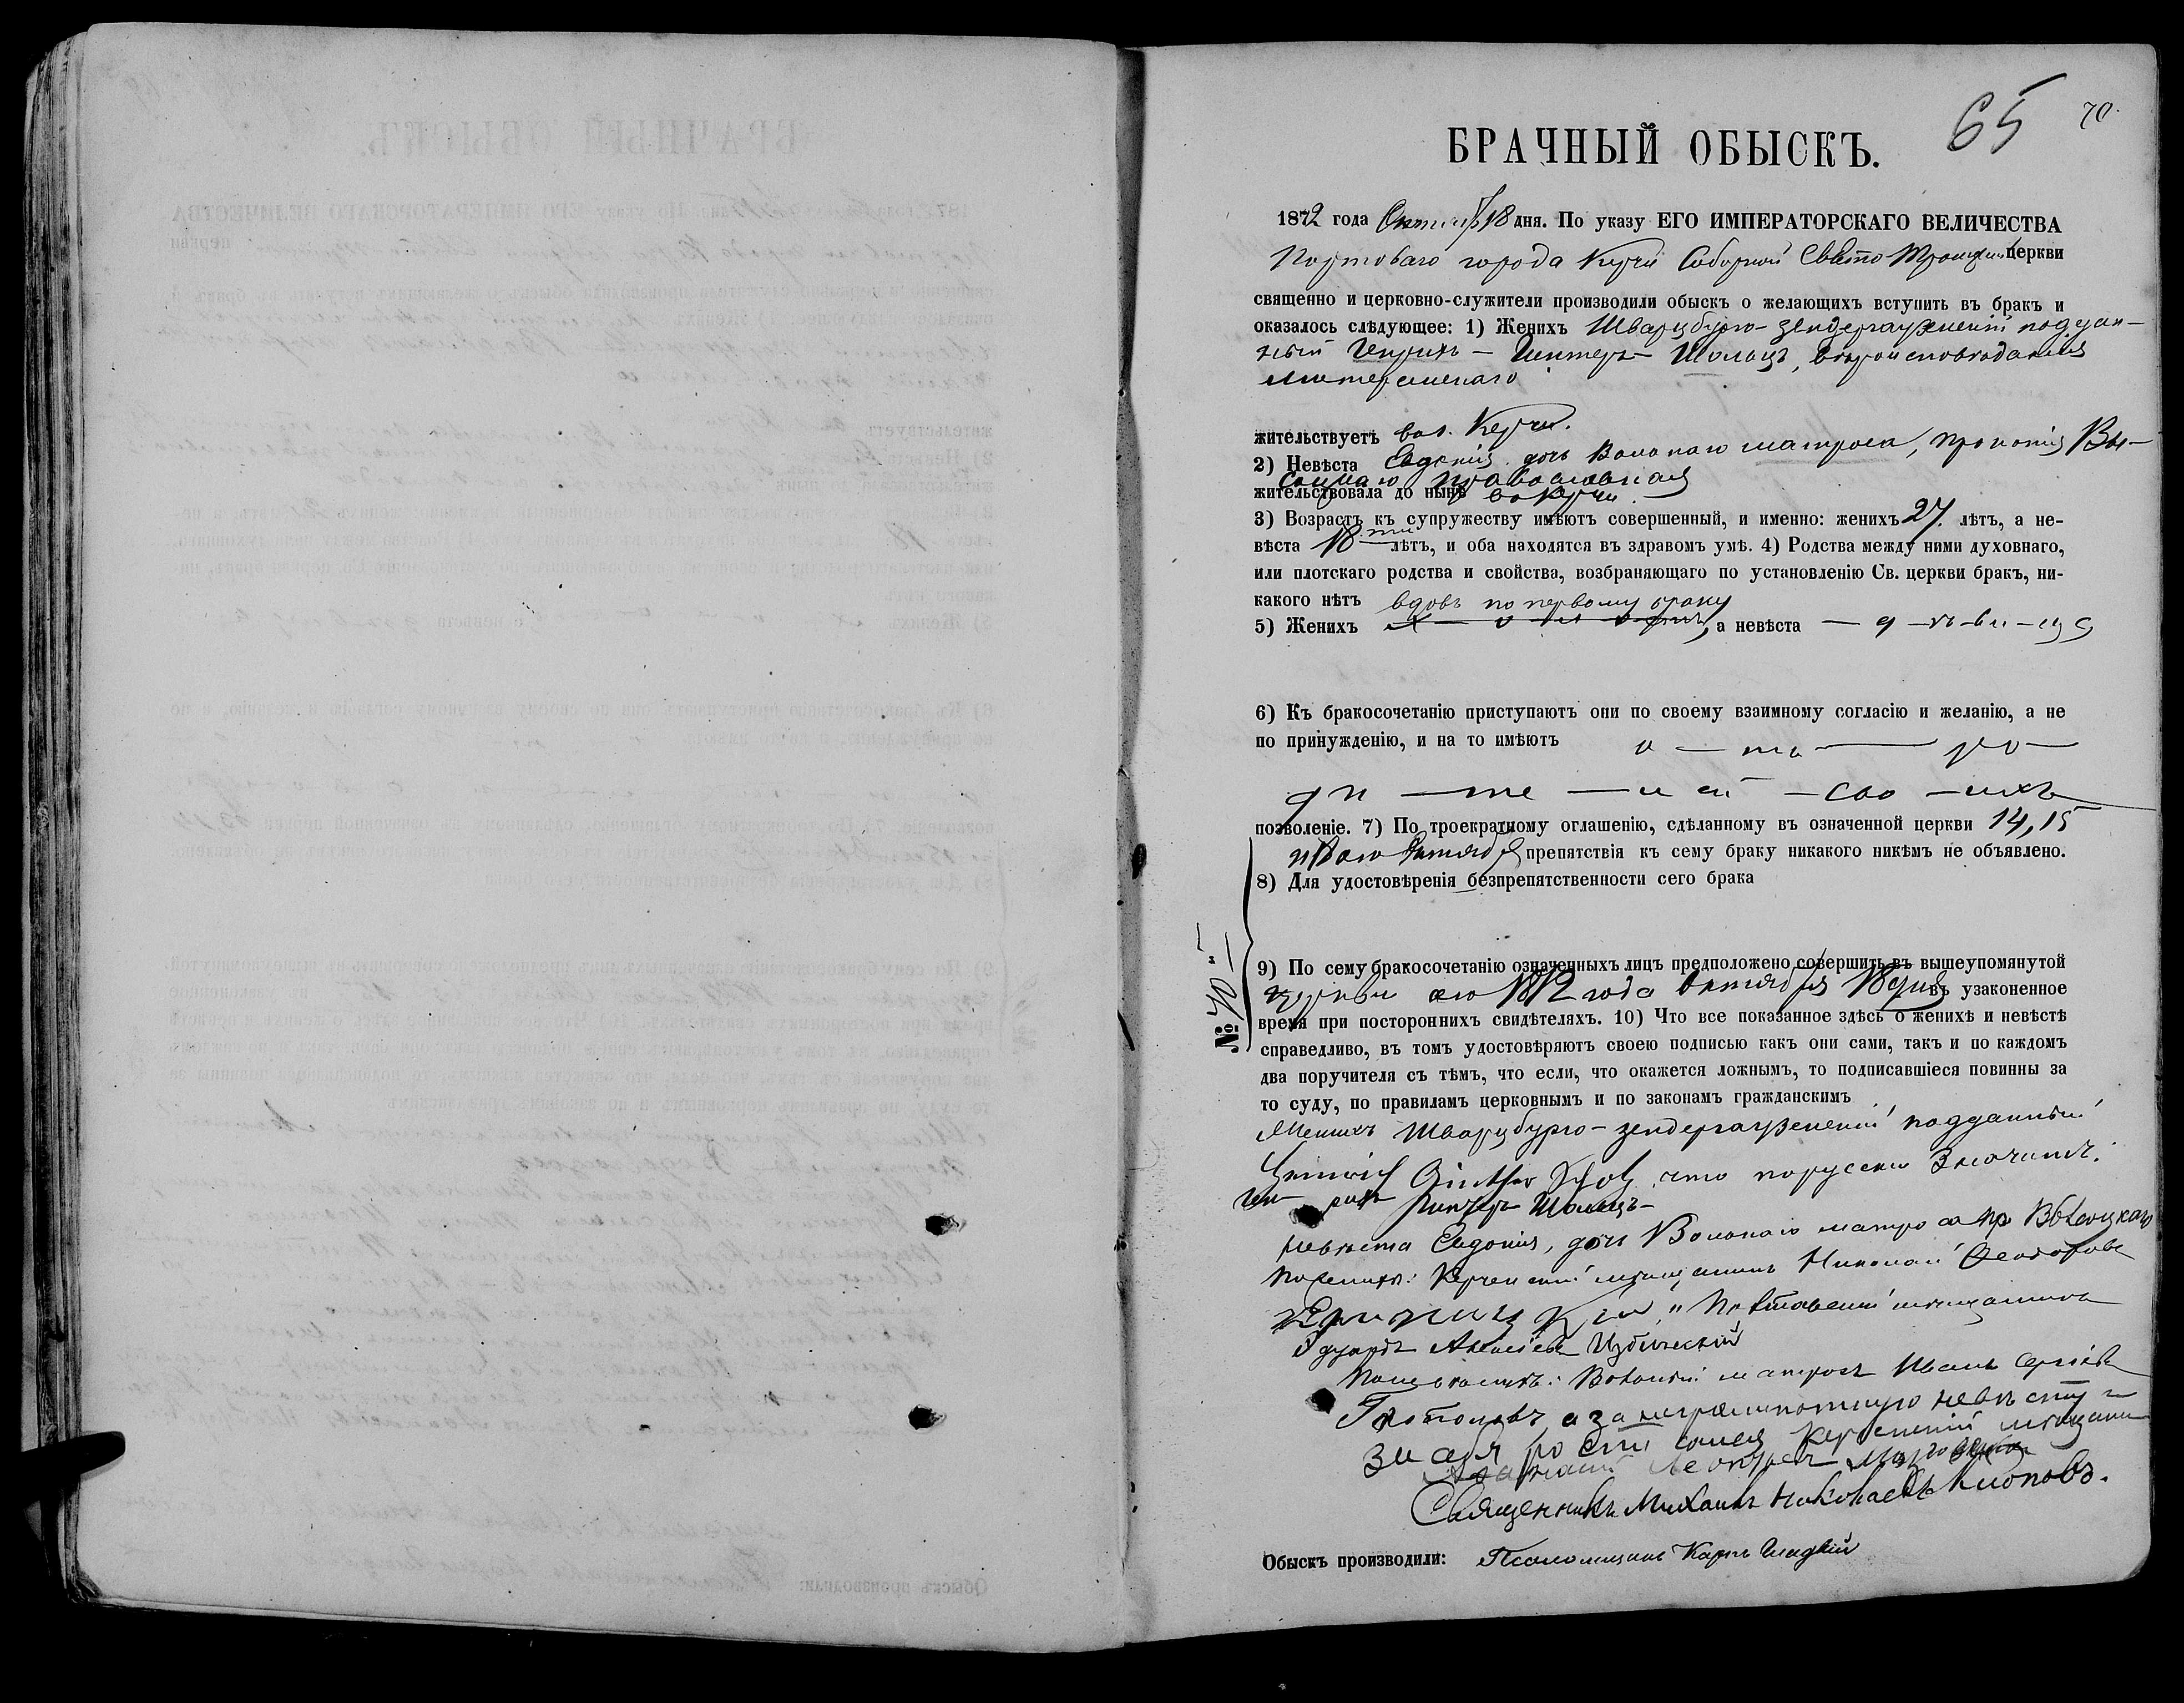 65 70.
БРАЧНЫЙ ОБЫСКЪ.
1872 года Октября 18 дня. По указу ЕГО ИМПЕРАТОРСКАГО ВЕЛИЧЕСТВА
Портоваго города Керчи Соборной Свято-Троицкой церкви
священно и церковно-служители производили обыскъ о желающихъ вступить въ бракъ и
оказалось слѣдующее: 1) Женихъ Шварцбурго-зендерсгаузенскій поддан-
ный Генрихъ-Гинтеръ-Шольцъ, вѣроисповѣданія
лютеранскаго
жительствуетъ въ г. Керчи.
2) Невѣста Евдокія дочь Вольнаго матроса, Прокопія Вы-
соцкаго православная
жительствовала до нынѣ въ Керчи
3) Возрастъ къ супружеству имѣютъ совершенный, и именно: женихъ 27. лѣтъ, а не-
вѣста 18-ти лѣтъ, и оба находятся въ здравомъ умѣ. 4) Родства между ними духовнаго,
или плотскаго родства и свойства, возбраняющаго по установленію Св. церкви бракъ, ни-
какого нѣтъ
вдовъ по первому браку
5) Женихъ , а невѣста — д — ѣ — ви — ца
6) Къ бракосочетанію приступаютъ они по своему взаимному согласію и желанію, а не
по принужденію, и на то имѣютъ о — тъ — ро —
ди — те — лей — сво — ихъ
позволеніе. 7) По троекратному оглашенію, сдѣланному въ означенной церкви 14, 15
и Октября препятствія къ сему браку никакого никѣмъ не объявлено.
8) Для удостовѣренія безпрепятственности сего брака
№ 70
9) По сему бракосочетанію означенныхъ лицъ предположено совершить въ вышеупомянутой
церкви сего 1872 года Октября 18 дня въ узаконенное
время при постороннихъ свидѣтеляхъ. 10) Что все показанное здѣсь о женихѣ и невѣстѣ
справедливо, въ томъ удостовѣряютъ своею подписью какъ они сами, такъ и по каждомъ
два поручителя съ тѣмъ, что если, что окажется ложнымъ, то подписавшіеся повинны за
то суду, по правиламъ церковнымъ и по законамъ гражданскимъ
Женихъ Шварцбурго-зендерсгаузенскій подданный
Heinrich Günther Scholz, что порусски значитъ:
Ген-рихъ Гинтеръ Шольцъ-
Невѣста Евдокія, дочь Вольнаго матроса Пр Высоцкаго
По женихѣ: Керченскій мѣщанинъ Николай Феодоровъ
мѣщанинъ
Эдуардъ
По невѣстѣ: Вольный матросъ Иванъ Сергѣевъ
а за неграмотную невѣсту и
за себя росписался Керченскій мѣщанинъ
Священникъ Михаилъ Николаевъ Клоповъ.
Обыскъ производили: Псаломщикъ Карпъ